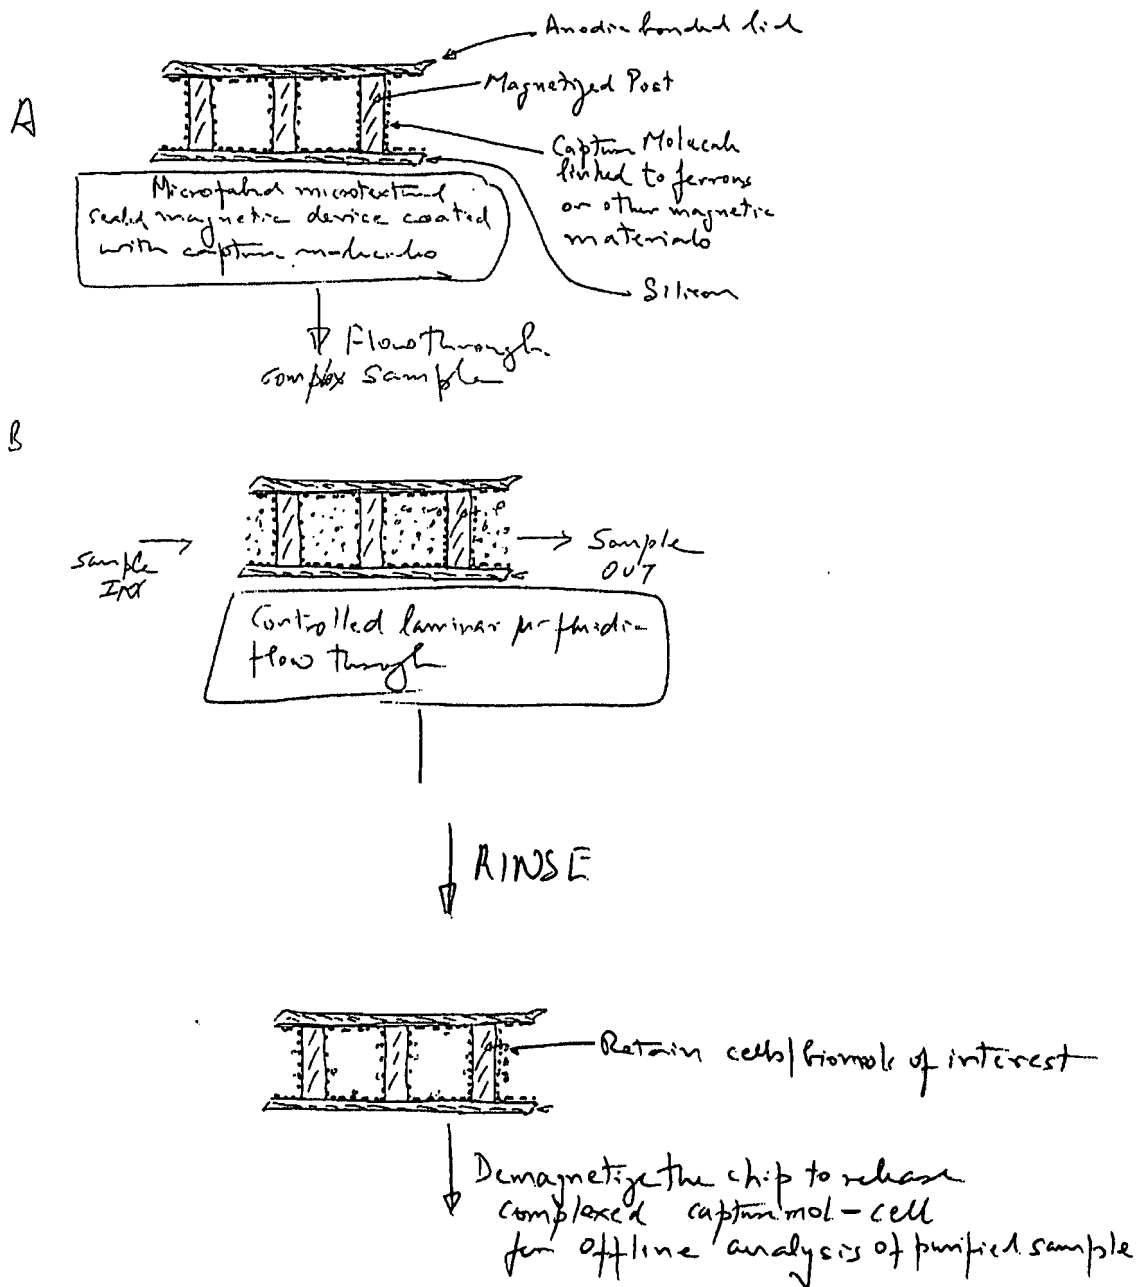 A
Anodic bonded lid
Magnetized Post
Capture Molecule
linked to ferrous
or other magnetic
materials
Silicon
Microfabed microtextured
sealed magnetic device coated
with capture molecules
Flow through
complex sample
B
Sample
IN
Sample
OUT
Controlled laminar μ-fluidic
flow through
RINSE
Retain cells/biomols of interest
Demagnetize the chip to release
complexed capture mol-cell
for offline analysis of purified sample